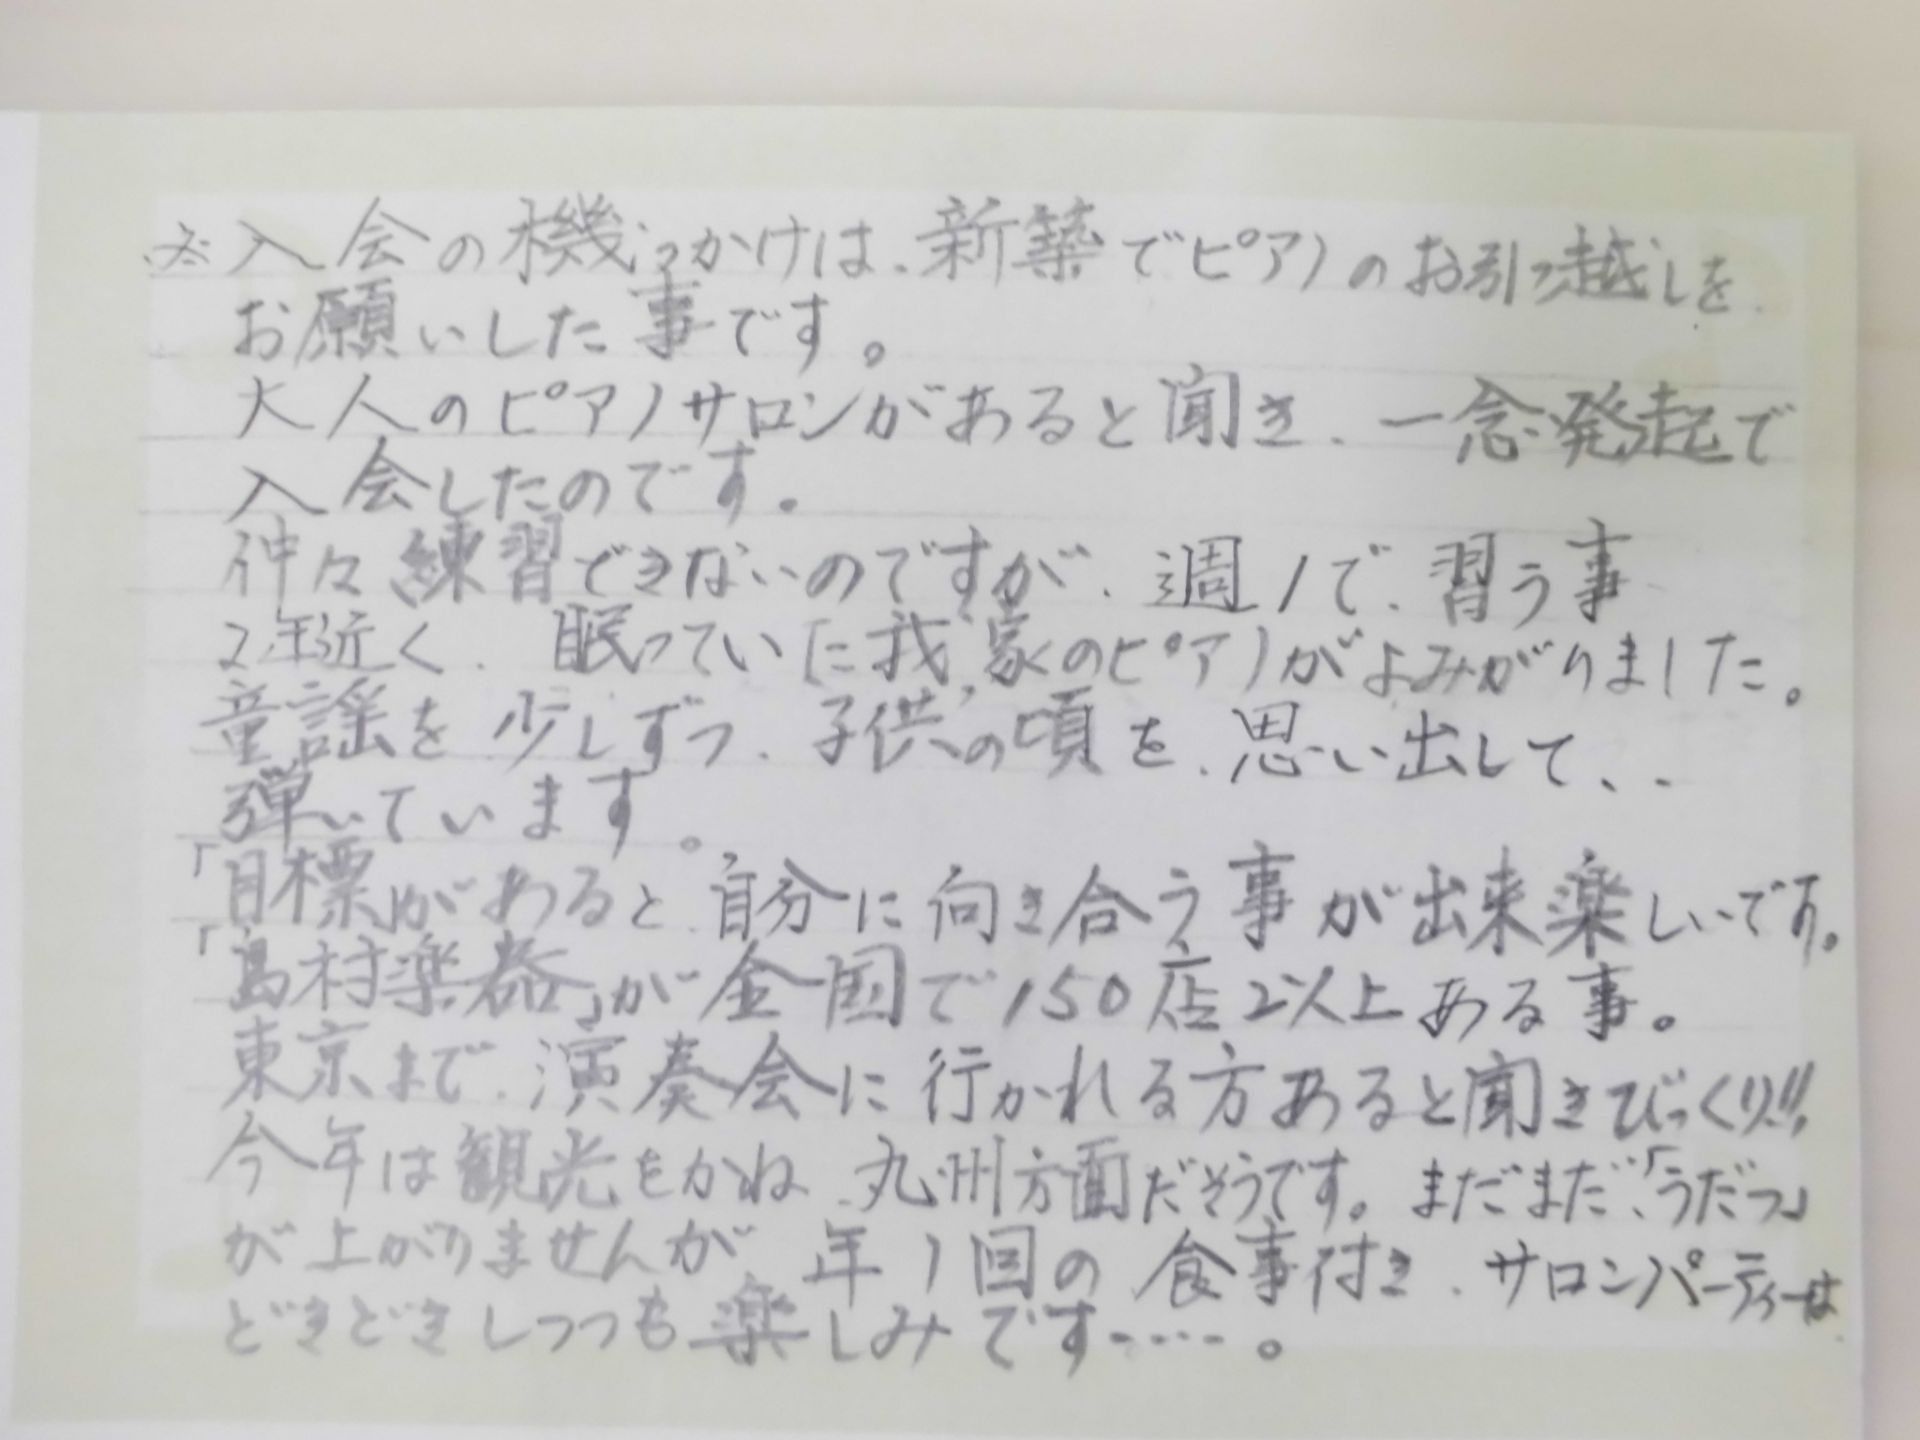 ※入会の機っかけは、新築でピアノのお引っ越しを
お願いした事です。
大人のピアノサロンがあると聞き、一念発起で
入会したのです。
仲々練習できないのですが、週1で、習う事
2年近く、眠っていた我が家のピアノがよみがりました。
童謡を少しずつ、子供の頃を、思い出して、、
弾いています。
「目標」があると、自分に向き合う事が出来楽しいです。
「島村楽器」が全国で150店2以上ある事。
東京まで、演奏会に行かれる方あると聞きびっくり!!
今年は観光をかね、九州方面だそうです。まだまだ、「うだつ」
が上がりませんが年1回の食事付き、サロンパーティーは
どきどきしつつも楽しみです……。